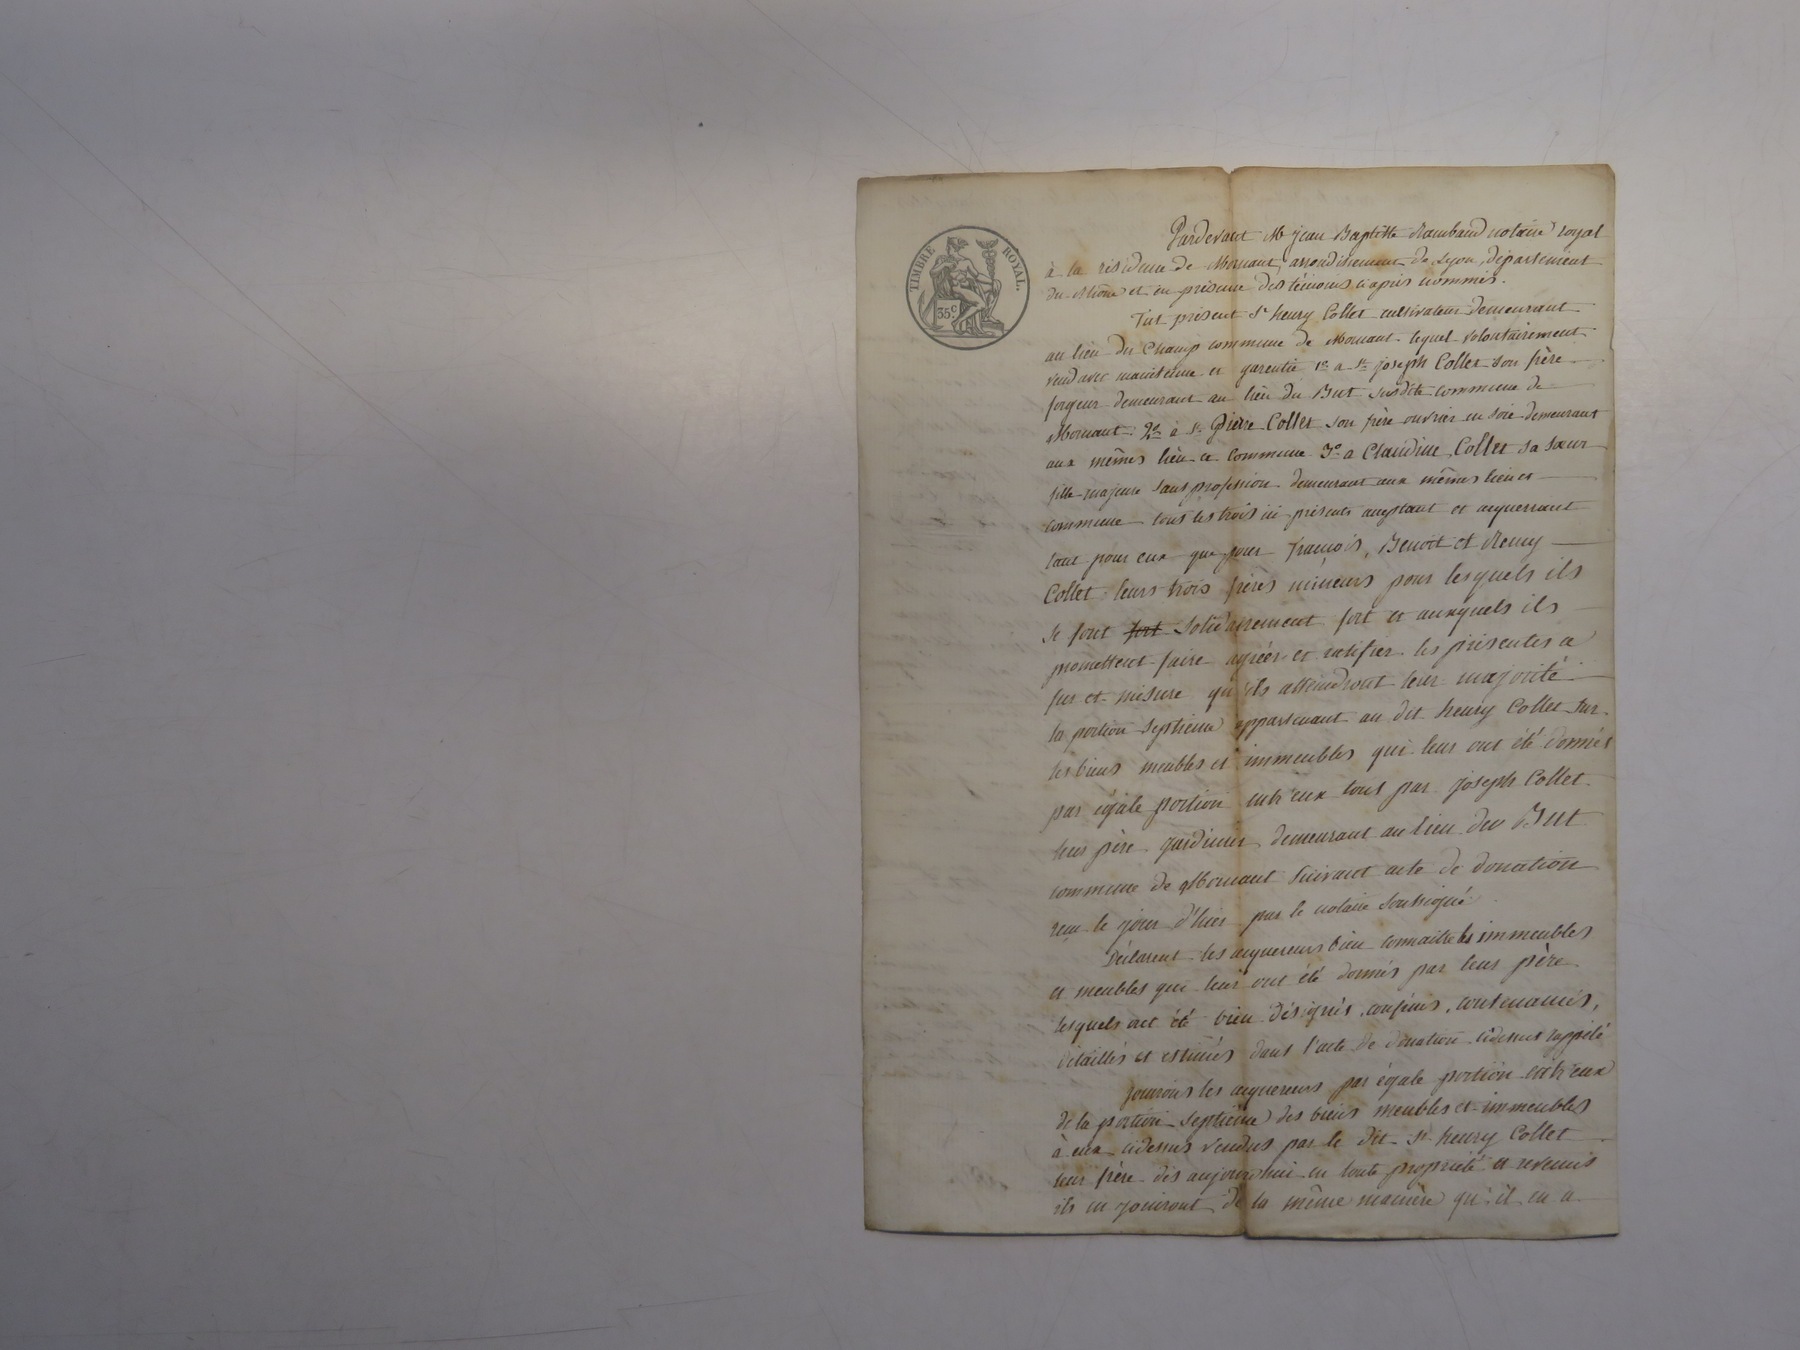 TIMBRE ROYAL.
35c.
Pardevant Me jean Baptiste Rambaud notaire royal
à la résidence de Mornant, arrondissement de Lyon, département
du Rhône et en présence des témoins ci après nommés.
Fut présent Sr henry Collet cultivateur demeurant
au lieu du Champ commune de Mornant lequel volontairement
vend avec maintenue et garentie 1o a Sr joseph Collet son frère
forgeur demeurant au lieu du But susdite commune de
Mornant: 2o à Sr Pierre Collet son frère ouvrier en soie demeurant
aux mêmes lieu et commune 3o a Claudine Collet sa sœur
fille majeure sans profession demeurant aux mêmes lieu et
commune tous les trois ici présents acceptant et acquerrant
tant pour eux que pour francois, Benoit et Remy
Collet leurs trois frères mineurs pour lesquels ils
se font fort solidairement fort et auxquels ils
promettent faire agréer et ratifier les présentes a
fur et misure qu'ils atteindront leur majorité
la portion septieme appartenant au dit henry Collet sur
les biens meubles et immeubles qui leur ont été donnés
par égale portion entr'eux tous par joseph Collet
leur père jardinier demeurant au lieu du But
commune de Mornant suivant acte de donation
reçu le jour d'hier par le notaire soussigné.
Déclarent les acquereurs bien connaitre les immeubles
et meubles qui leur ont été donnés par leur père
lesquels ont été bien désignés, confinés, contenancés,
détaillés et estimés dans l'acte de donation cidessus rappelé
jouirons les acquereurs par égale portion entr'eux
de la portion septieme des biens meubles et immeubles
à eux cidessus vendus par le dit Sr henry Collet
leur frère dès aujourdhui en toute propriété et revenus
ils en jouiront de la même manière qu'il en a